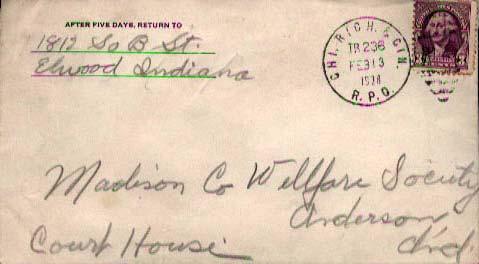 AFTER FIVE DAYS, RETURN TO
1812 So B St.
Elwood Indiana
CHI. RICH. & CIN.
TR 236
FEB 13
R.P.O.
3
Madison Co Wellfare Society
Anderson
Court House Ind.